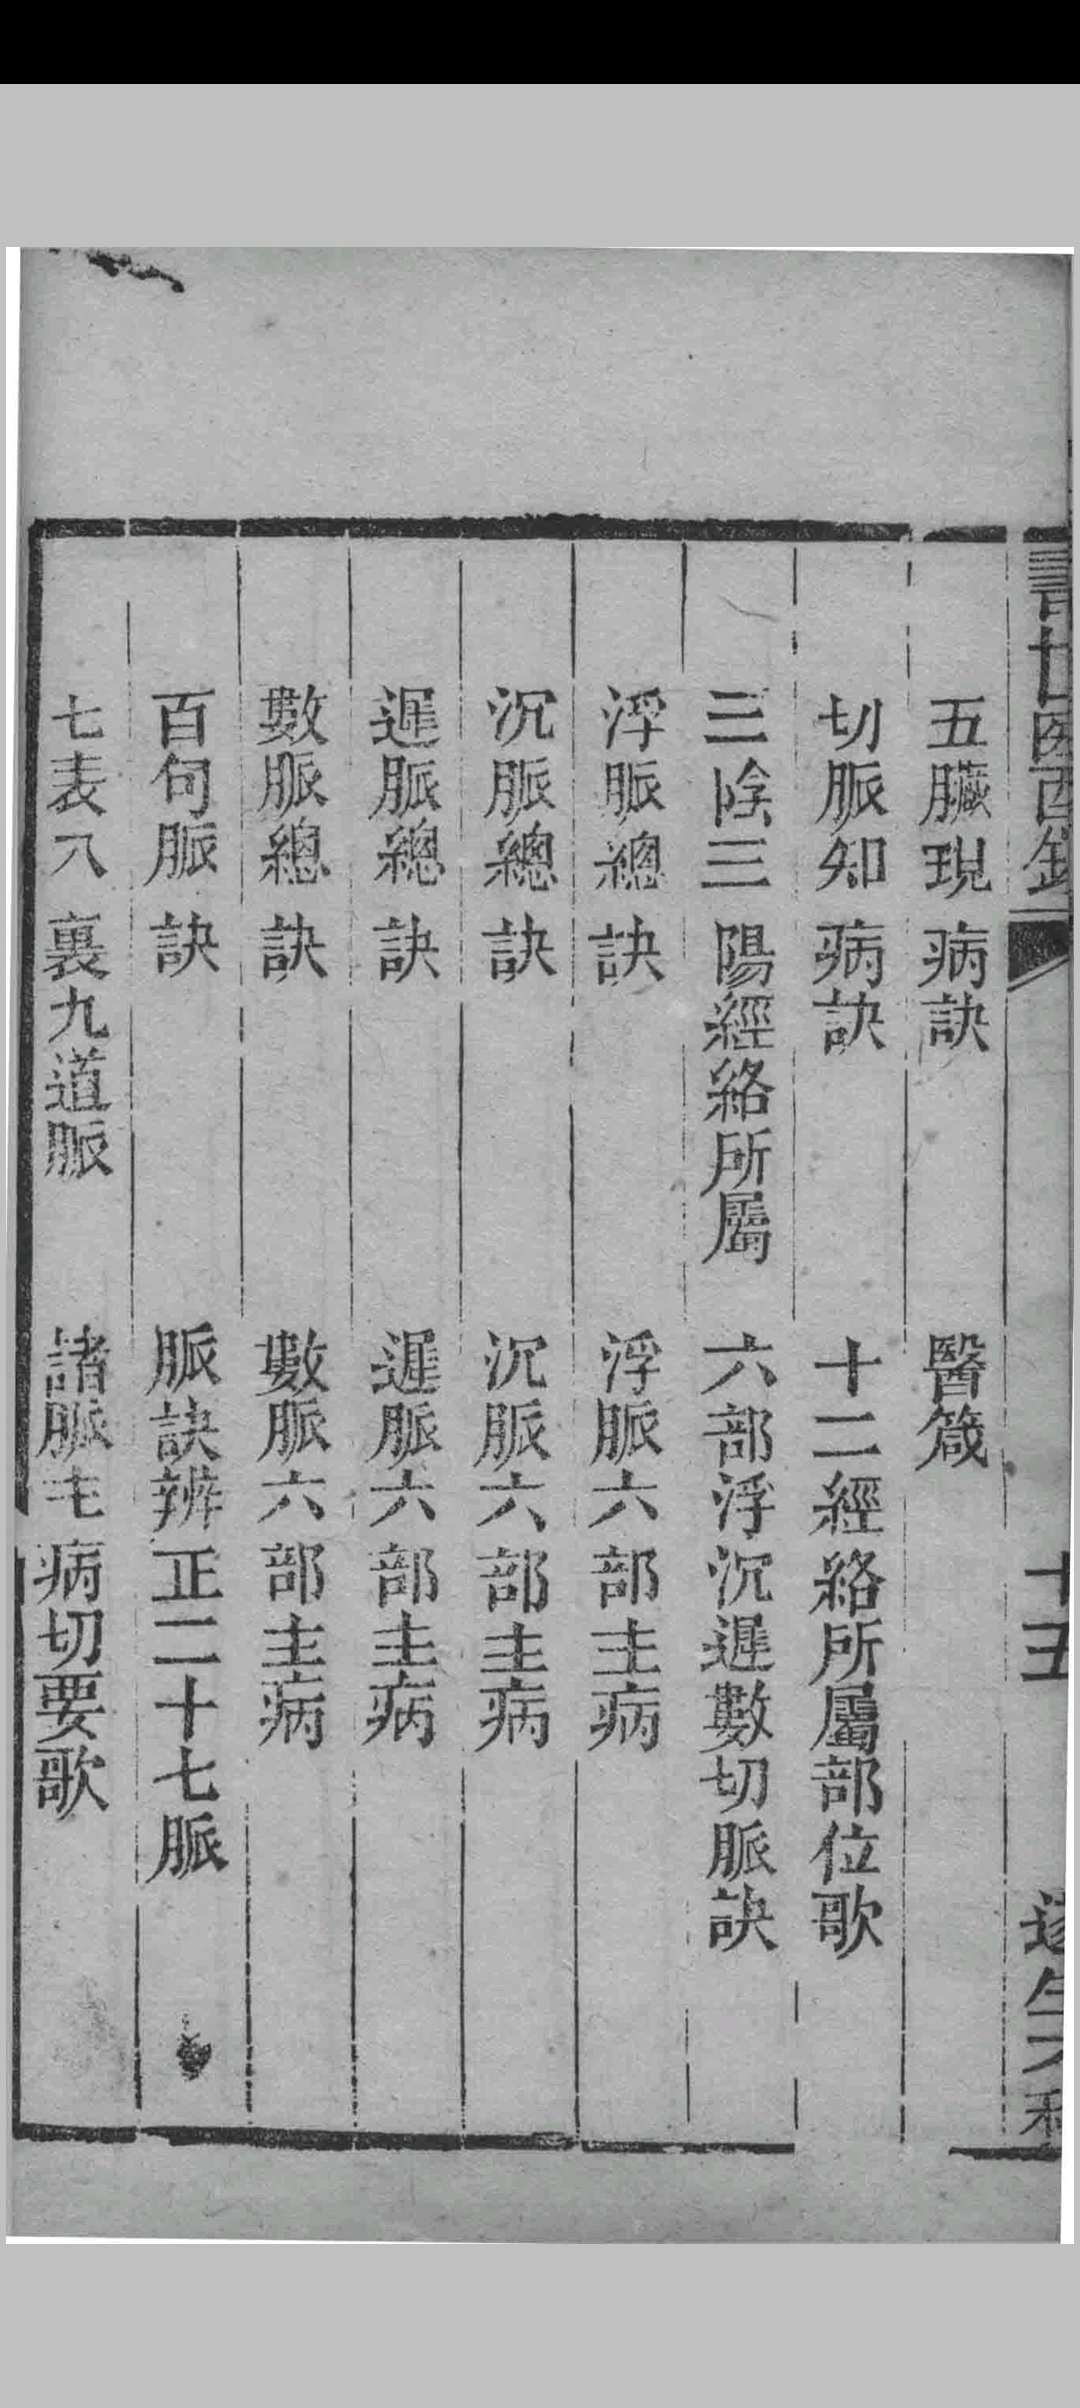 五臟現病訣　醫箴
切脈知病訣　十二經絡所屬部位歌
三陰三陽經絡所屬　六部浮沉遲數切脈訣
浮脈總訣　浮脈六部主病
沉脈總訣　沉脈六部主病
遲脈總訣　遲脈六部主病
數脈總訣　數脈六部主病
百句脈訣　脈訣辨正二十七脈
七表八裏九道脈　諸脈主病切要歌